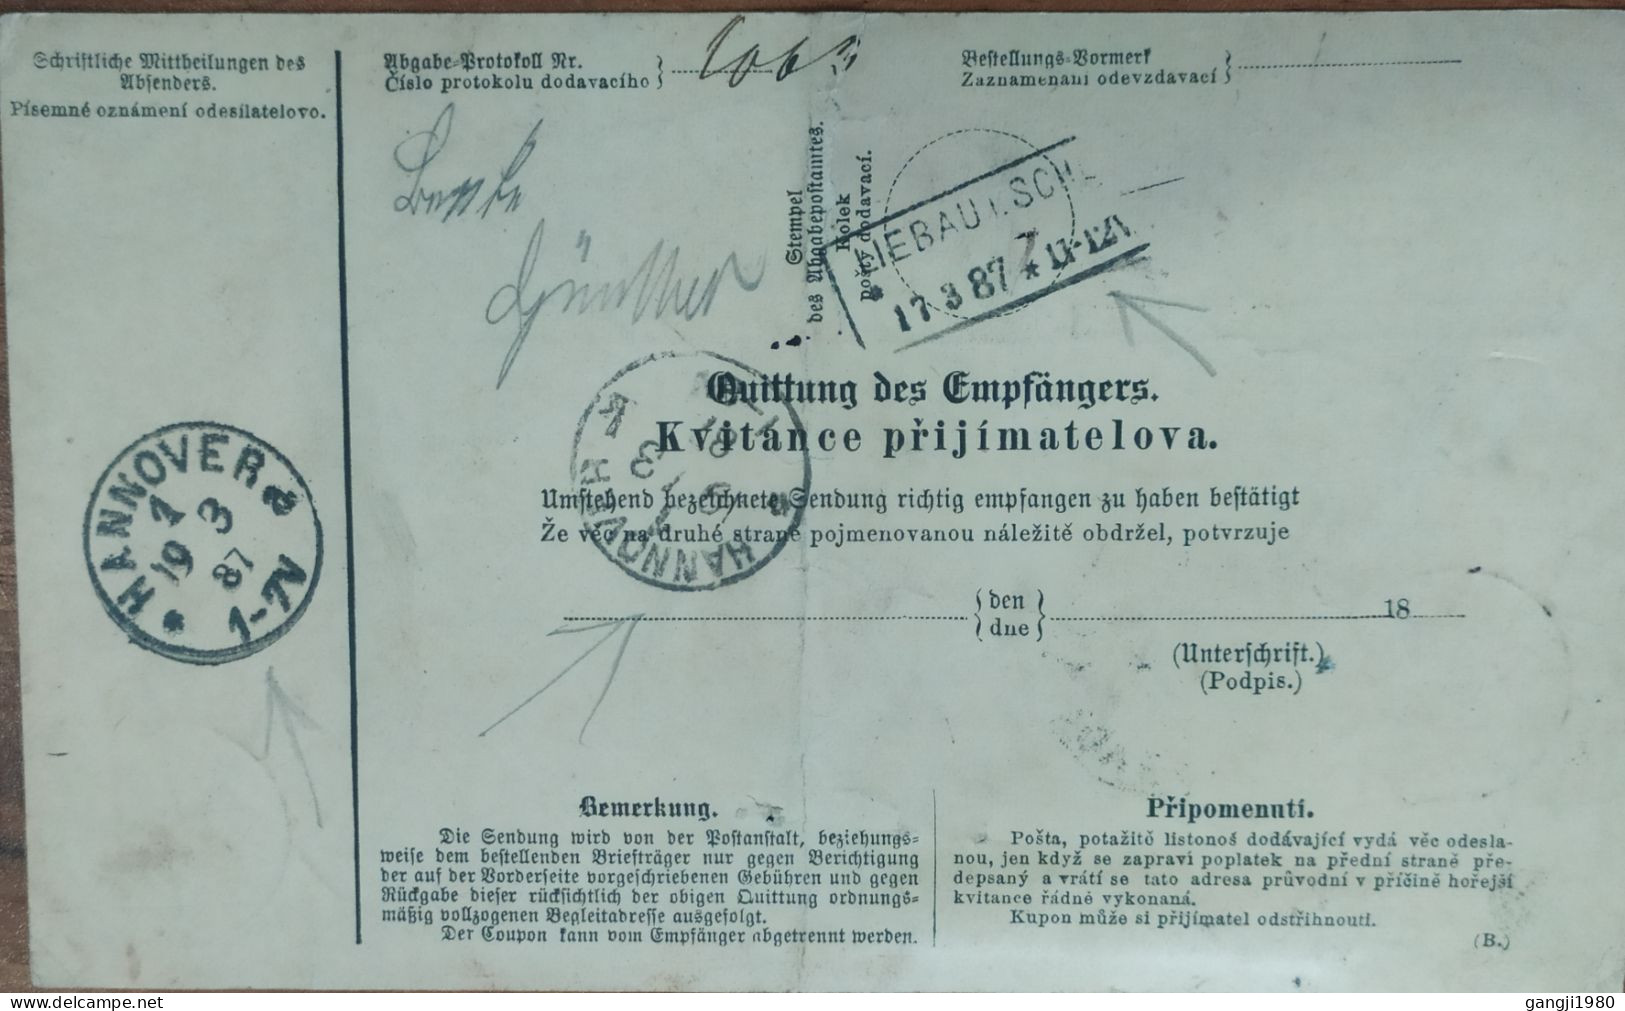 Schriftliche Mittheilungen des
Absenders.
Písemné oznámení odesílatelovo.
Abgabe-Protokoll Nr.
Číslo protokolu dodavacího
Bestellungs-Vormerk
Zaznamenání odevzdavací
Stempel
des Abgabepostamtes.
Kolek
pošty dodavací.
* LIEBAU i. SCHL
17 3 87 * 11-12V
Günther
Quittung des Empfängers.
Kvitance přijímatelova.
Umstehend bezeichnete Sendung richtig empfangen zu haben bestätigt
Že věc na druhé straně pojmenovanou náležitě obdržel, potvrzuje
HANNOVER a
1
19 3
87
1-7N
*
HANNOVER
HANNOV
den
dne
18
(Unterschrift.)
(Podpis.)
Bemerkung.
Die Sendung wird von der Postanstalt, beziehungs-
weise dem bestellenden Briefträger nur gegen Berichtigung
der auf der Vorderseite vorgeschriebenen Gebühren und gegen
Rückgabe dieser rücksichtlich der obigen Quittung ordnungs-
mäßig vollzogenen Begleitadresse ausgefolgt.
Der Coupon kann vom Empfänger abgetrennt werden.
Připomenutí.
Pošta, potažitě listonoš dodávající vydá věc odesla-
nou, jen když se zapraví poplatek na přední straně pře-
depsaný a vrátí se tato adresa průvodní v příčině hořejší
kvitance řádně vykonaná.
Kupon může si přijímatel odstřihnouti.
(B.)
www.delcampe.net
gangji1980